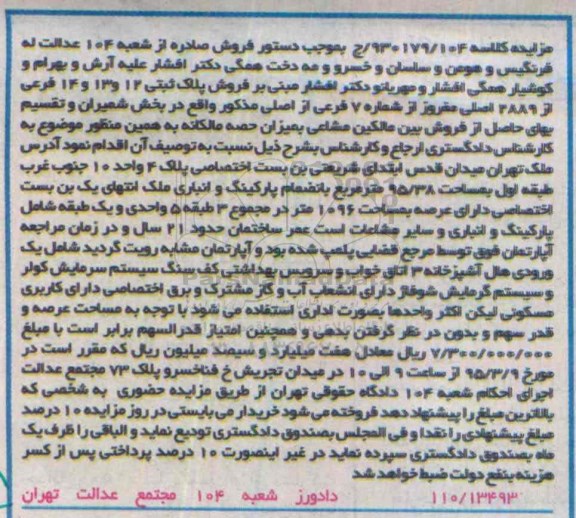 مزایده کلاسه ۹۳۰۱۷۹/۱۰۴/ج بموجب دستور فروش صادره از شعبه ۱۰۴ عدالت له
فرنگیس و هومن و ساسان و خسرو و مه دخت همگی دکتر افشار علیه آرش و بهرام و
کوشیار همگی افشار و مهربانو دکتر افشار مبنی بر فروش پلاک ثبتی ۱۲ و۱۳ و ۱۴ فرعی
از ۲۸۸۹ اصلی مفروز از شماره ۷ فرعی از اصلی مذکور واقع در بخش شمیران و تقسیم
بهای حاصل از فروش بین مالکین مشاعی بمیزان حصه مالکانه به همین منظور موضوع به
کارشناس دادگستری ارجاع و کارشناس بشرح ذیل نسبت به توصیف آن اقدام نمود آدرس
ملک تهران میدان قدس ابتدای شریعتی بن بست اختصاصی پلاک ۴ واحد ۱۰ جنوب غرب
طبقه اول بمساحت ۹۵/۳۸ مترمربع بانضمام پارکینگ و انباری ملک انتهای یک بن بست
اختصاصی دارای عرصه بمساحت ۱۰۹۶ متر در مجموع ۳ طبقه ۵ واحدی و یک طبقه شامل
پارکینگ و انباری و سایر مشاعات است عمر ساختمان حدود ۲۱ سال و در زمان مراجعه
آپارتمان فوق توسط مرجع قضایی پلمپ شده بود و آپارتمان مشابه رویت گردید شامل یک
ورودی هال آشپزخانه ۳ اتاق خواب و سرویس بهداشتی کف سنگ سیستم سرمایش کولر
و سیستم گرمایش شوفاژ دارای انشعاب آب و گاز مشترک و برق اختصاصی دارای کاربری
مسکونی لیکن اکثر واحدها بصورت اداری استفاده می شود با توجه به مساحت عرصه و
قدر سهم و بدون در نظر گرفتن بدهی و همچنین امتیاز قدرالسهم برابر است با مبلغ
۷/۳۰۰/۰۰۰/۰۰۰ ریال معادل هفت میلیارد و سیصد میلیون ریال که مقرر است در
مورخ ۹۵/۳/۹ از ساعت ۹ الی ۱۰ در میدان تجریش خ فناخسرو پلاک ۷۳ مجتمع عدالت
اجرای احکام شعبه ۱۰۴ دادگاه حقوقی تهران از طریق مزایده حضوری به شخصی که
بالاترین مبلغ را پیشنهاد دهد فروخته می شود خریدار می بایستی در روز مزایده ۱۰ درصد
مبلغ پیشنهادی را نقدا و فی المجلس بصندوق دادگستری تودیع نماید و الباقی را ظرف یک
ماه بصندوق دادگستری سپرده نماید در غیر اینصورت ۱۰ درصد پرداختی پس از کسر
هزینه بنفع دولت ضبط خواهد شد
۱۱۰/۱۳۴۹۳ دادورز شعبه ۱۰۴ مجتمع عدالت تهران